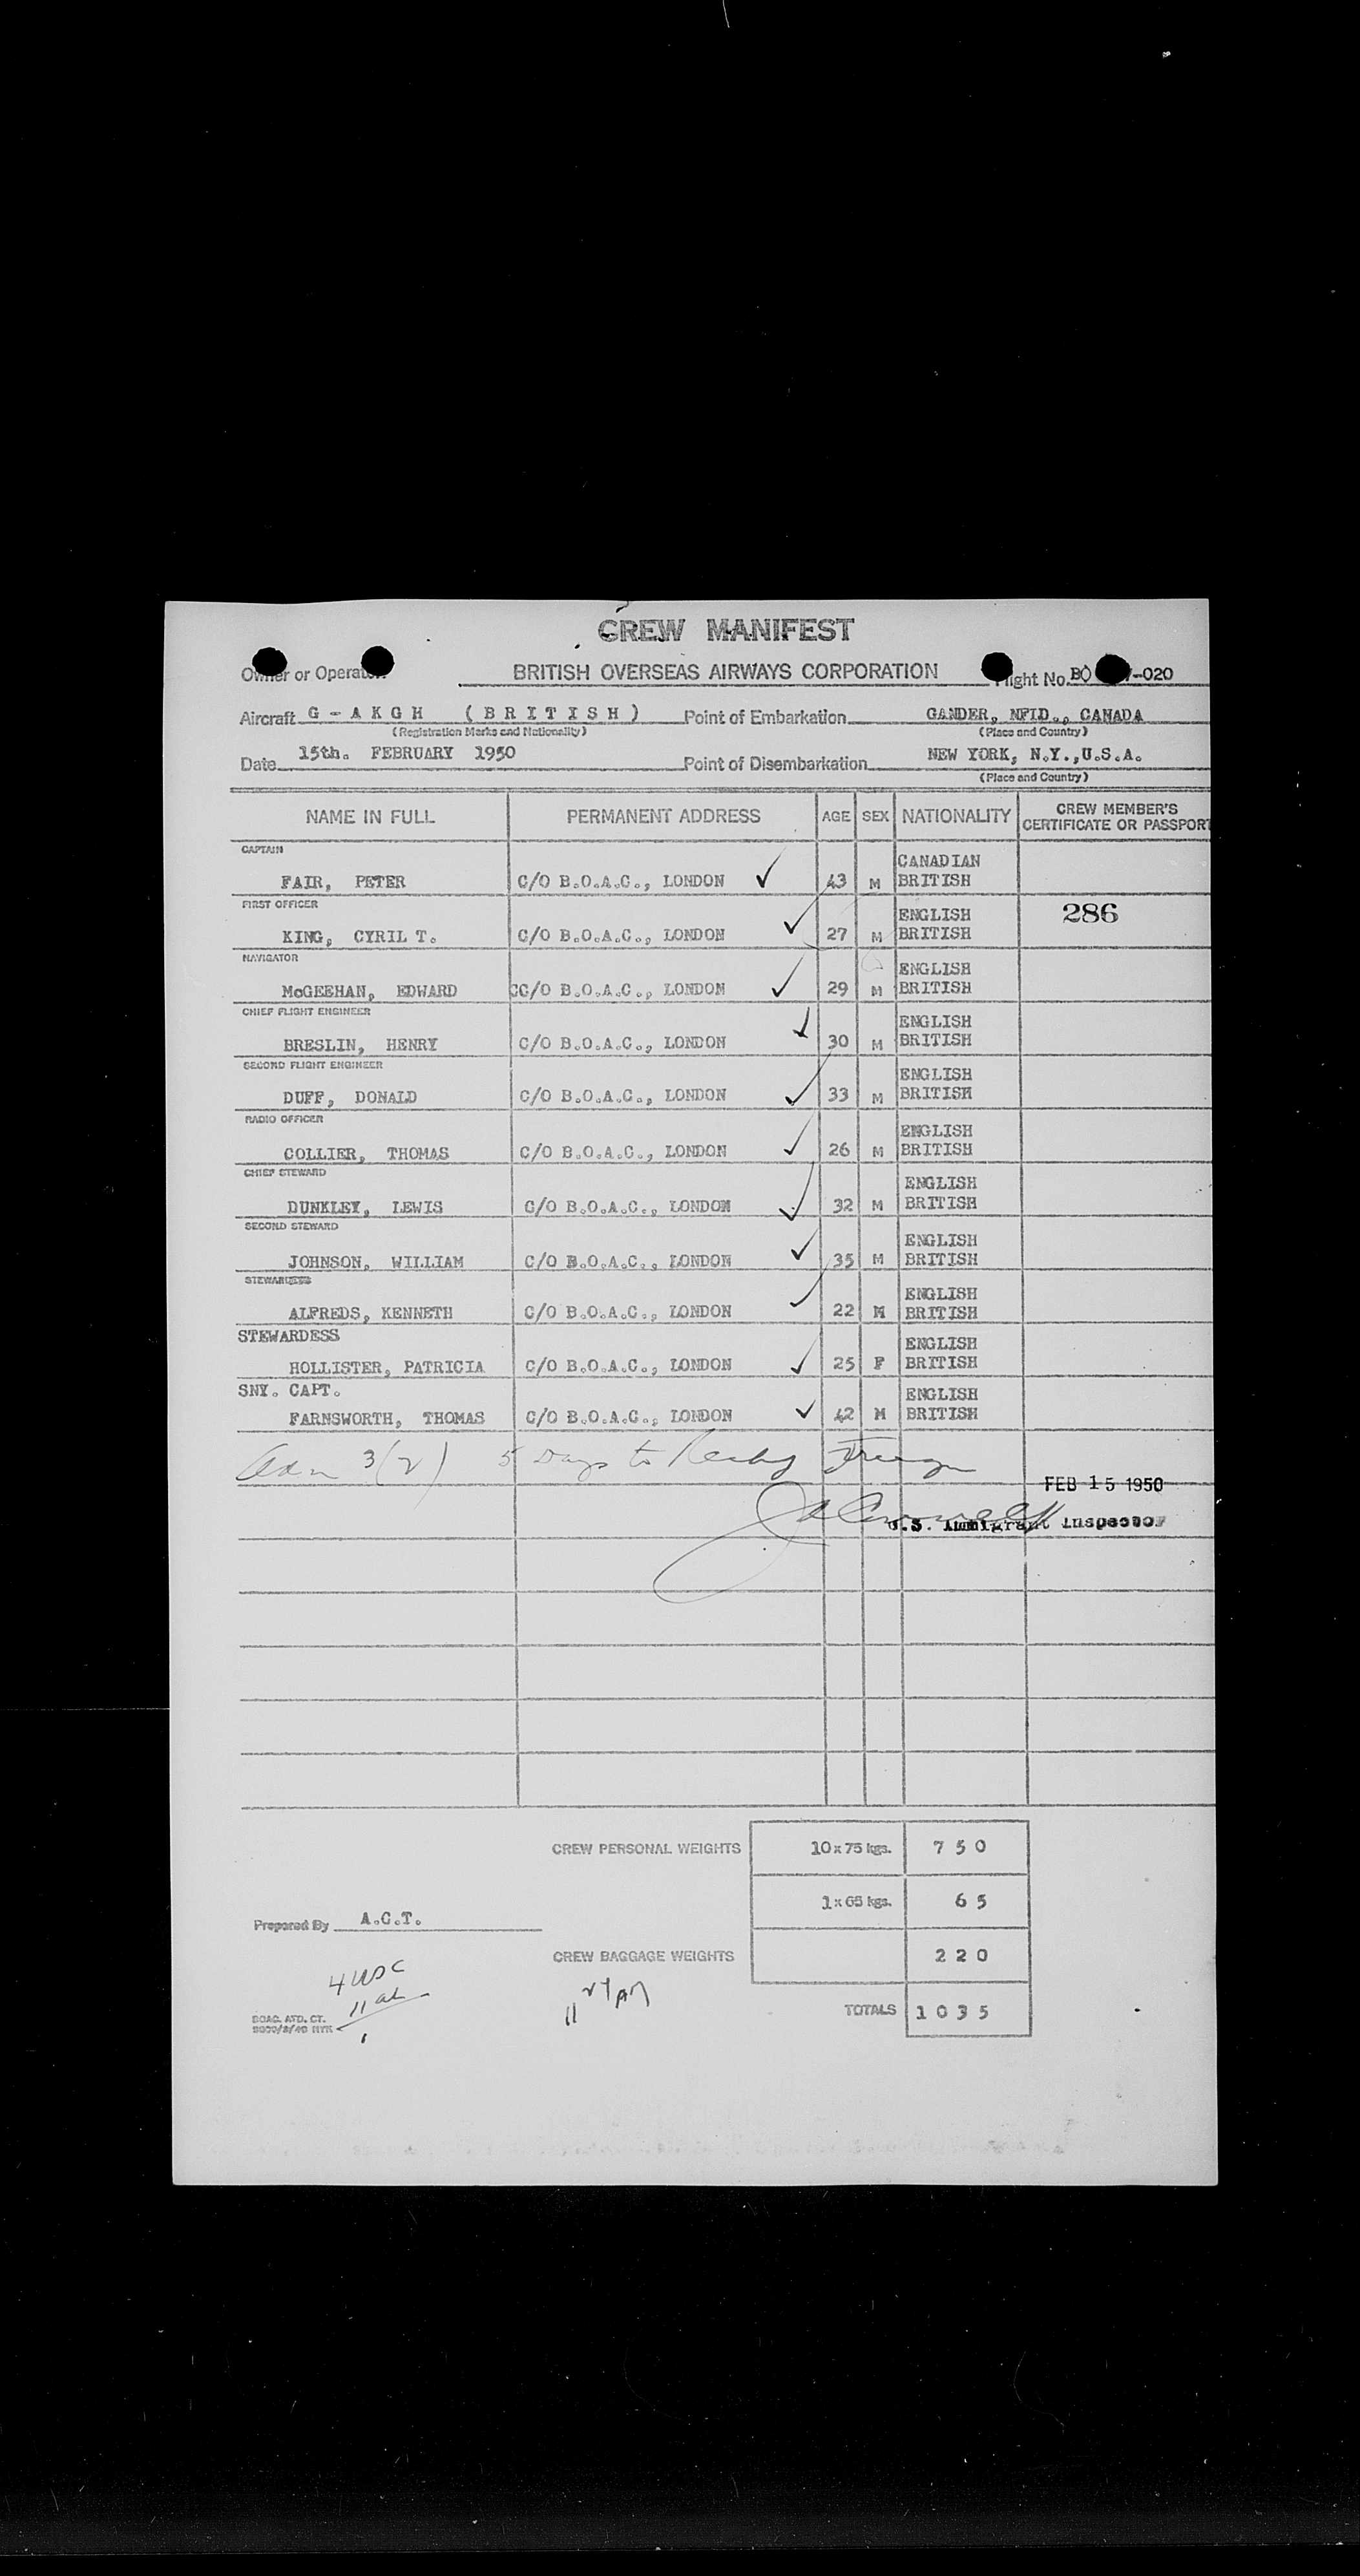 CREW MANIFEST
Owner or Operator BRITISH OVERSEAS AIRWAYS CORPORATION Flight No. BO -020
Aircraft G - A K G H ( B R I T I S H ) Point of Embarkation GANDER, NFLD., CANADA
(Registration Marks and Nationality) (Place and Country)
Date 15th. FEBRUARY 1950 Point of Disembarkation NEW YORK, N.Y.,U.S.A.
(Place and Country)
NAME IN FULL PERMANENT ADDRESS AGE SEX NATIONALITY CREW MEMBER'S
CERTIFICATE OR PASSPORT
CAPTAIN CANADIAN
FAIR, PETER C/O B.O.A.C., LONDON 43 M BRITISH
FIRST OFFICER ENGLISH 286
KING, CYRIL T. C/O B.O.A.C., LONDON 27 M BRITISH
NAVIGATOR ENGLISH
McGEEHAN, EDWARD CC/O B.O.A.C., LONDON 29 M BRITISH
CHIEF FLIGHT ENGINEER ENGLISH
BRESLIN, HENRY C/O B.O.A.C., LONDON 30 M BRITISH
SECOND FLIGHT ENGINEER ENGLISH
DUFF, DONALD C/O B.O.A.C., LONDON 33 M BRITISH
RADIO OFFICER ENGLISH
COLLIER, THOMAS C/O B.O.A.C., LONDON 26 M BRITISH
CHIEF STEWARD ENGLISH
DUNKLEY, LEWIS C/O B.O.A.C., LONDON 32 M BRITISH
SECOND STEWARD ENGLISH
JOHNSON, WILLIAM C/O B.O.A.C., LONDON 35 M BRITISH
STEWARDESS ENGLISH
ALFREDS, KENNETH C/O B.O.A.C., LONDON 22 M BRITISH
STEWARDESS ENGLISH
HOLLISTER, PATRICIA C/O B.O.A.C., LONDON 25 F BRITISH
SNY. CAPT. ENGLISH
FARNSWORTH, THOMAS C/O B.O.A.C., LONDON 42 M BRITISH
Adm 3(2) 5 Days to
FEB 15 1950
U.S. Immigrant Inspector
CREW PERSONAL WEIGHTS 10 x 75 kgs. 7 5 0
1 x 65 kgs. 6 5
Prepared By A.C.T.
CREW BAGGAGE WEIGHTS 2 2 0
4 USC
11 al
TOTALS 1 0 3 5
BOAC. ATD. CT.